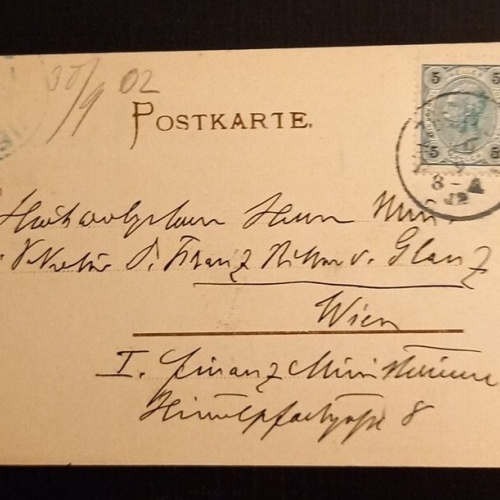 30/9 02
POSTKARTE.
5 HELLER 5
5 5
8-
Hochwohlgeboren Herrn
Dr. Franz Ritter v. Glanz
Wien
I. Finanz Ministerium
Himmelpfortgasse 8